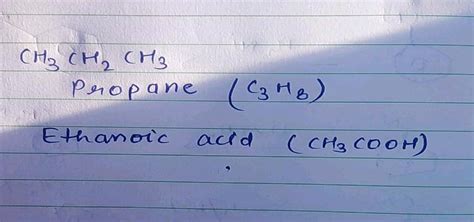 CH₃ CH₂ CH₃
Propane (C₃H₈)
Ethanoic acid (CH₃COOH)